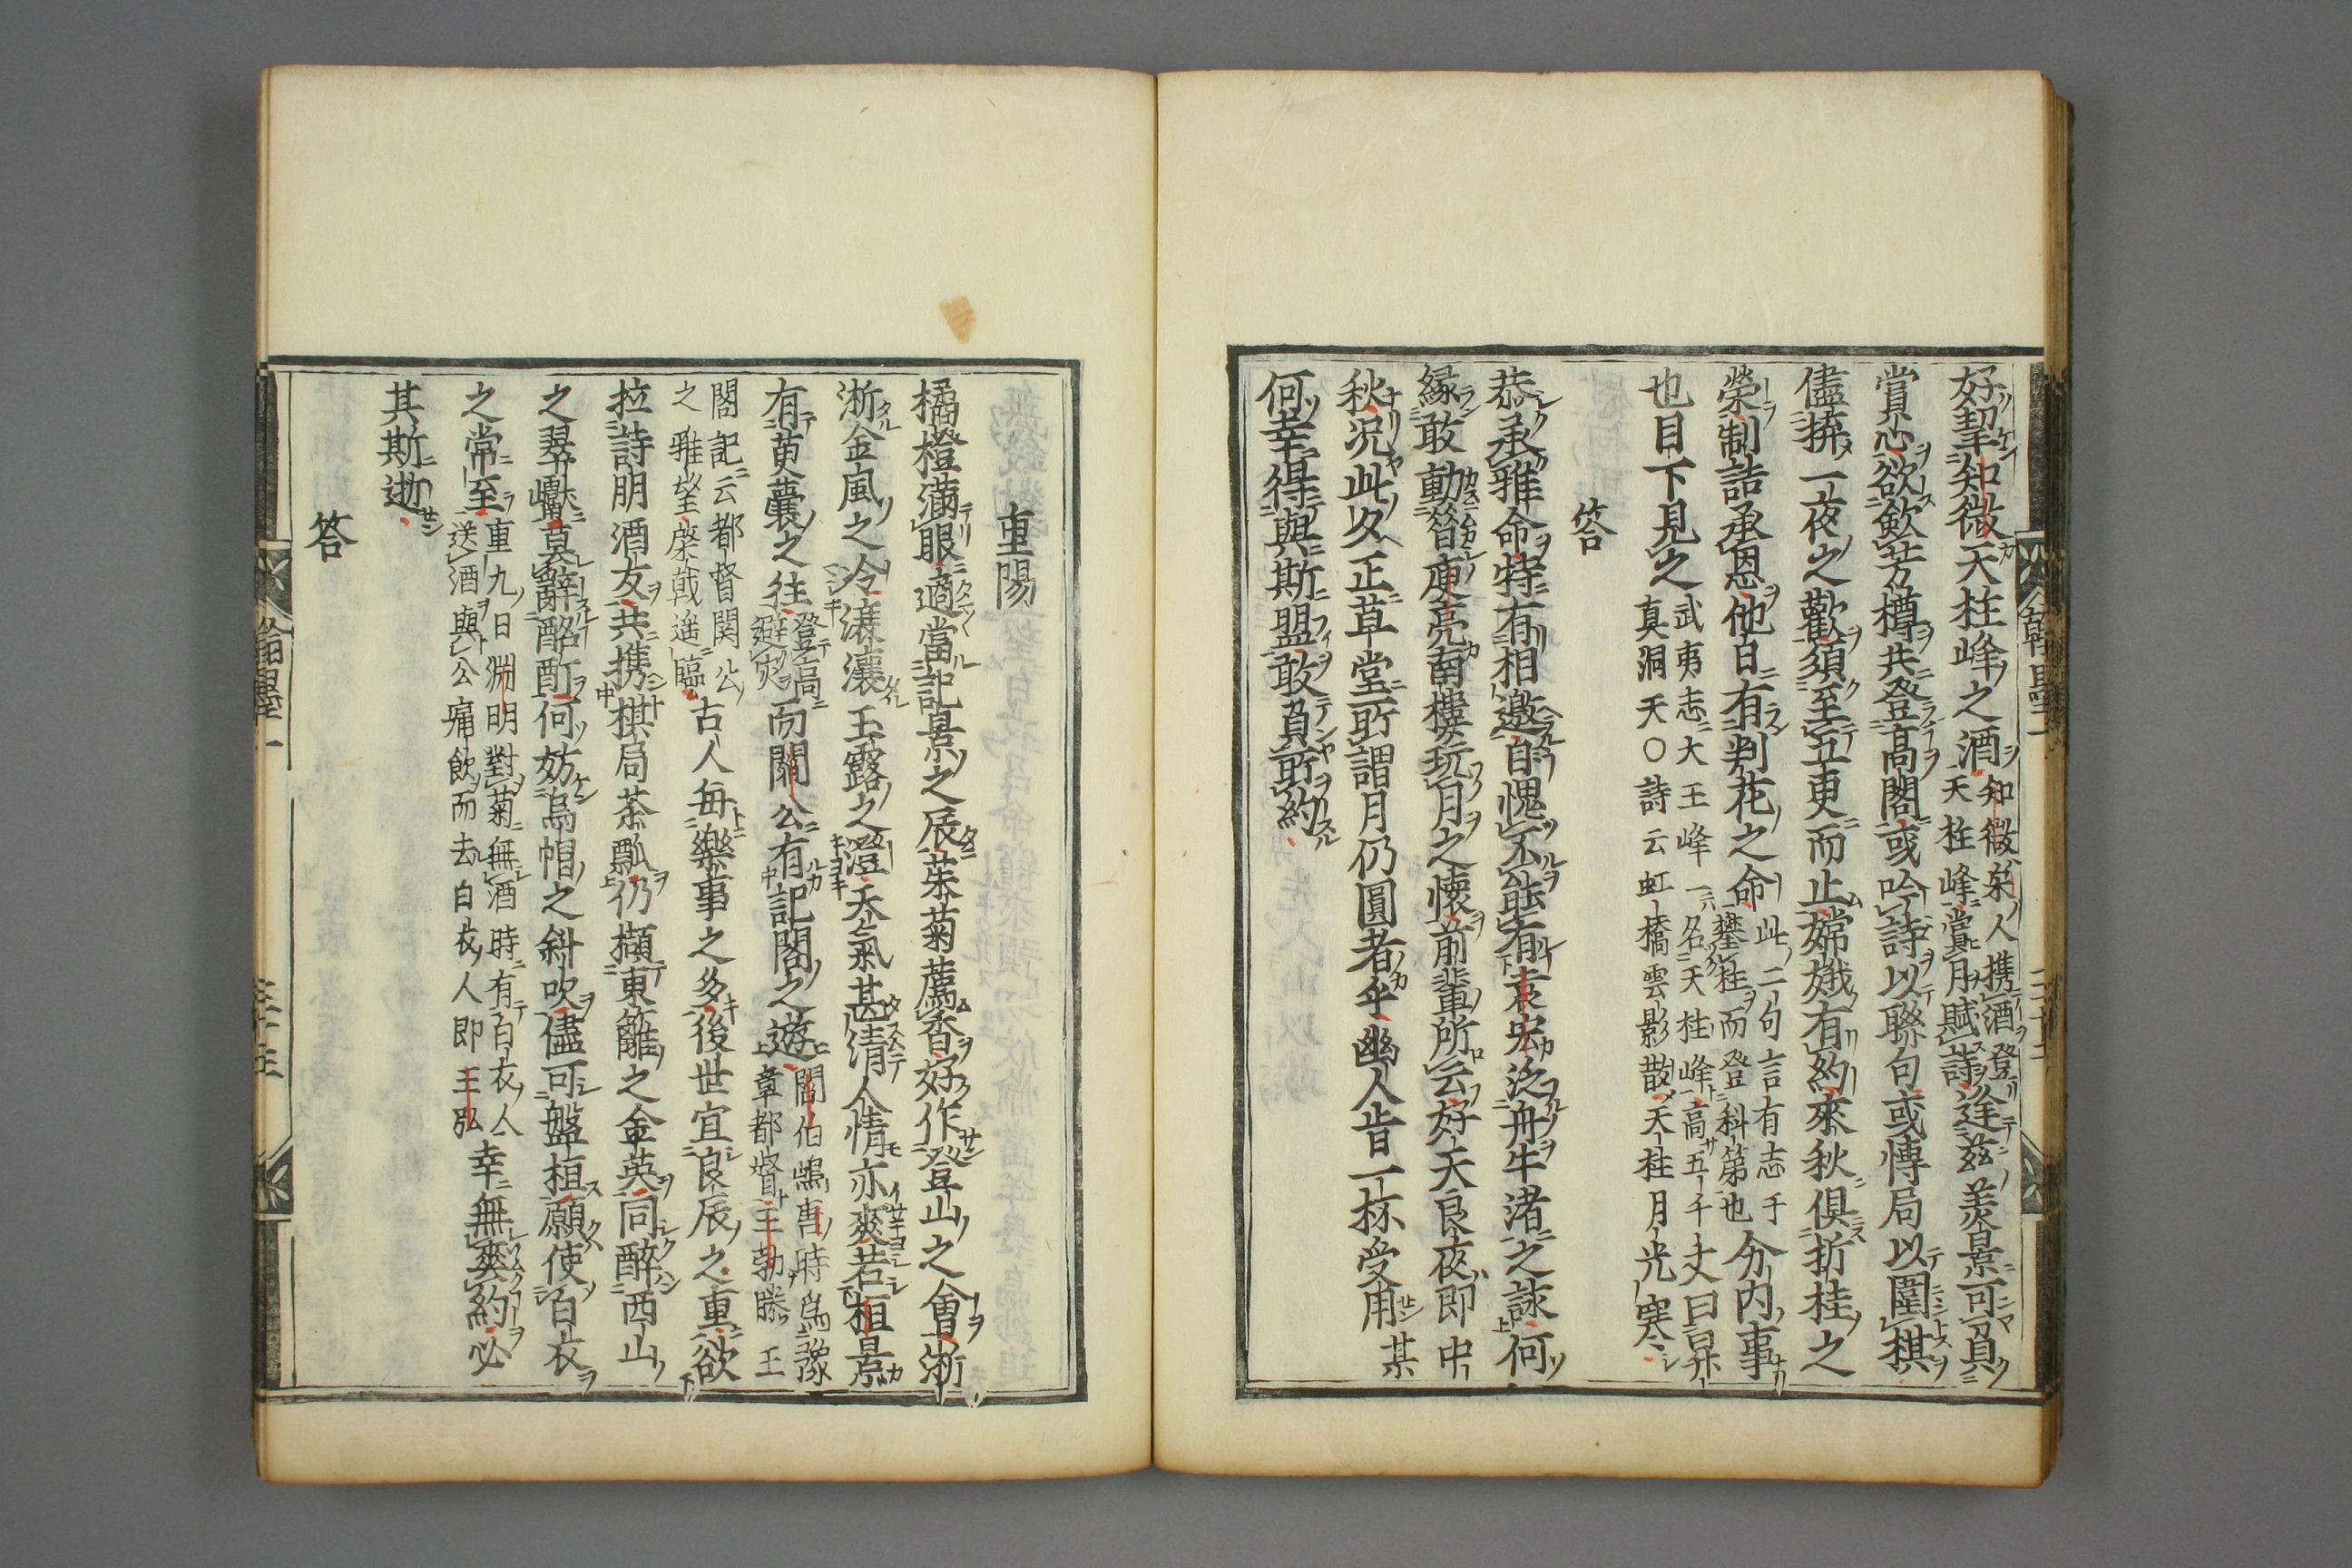 好挈知微天柱峰之酒知微君人携酒登
天柱峰賞月賦詩逢茲美景可負
賞心欲斂芳樽共登高閣或吟詩以聯句或博局以圍棋
儘拚一夜之歡須至五更而止嫦娥有約來秋俱折桂之
榮制誥承恩他日有判花之命此二句言有志于
攀桂而登科第也分内事
也目下見之武夷志大王峰一名天柱峰高五千丈曰昇
真洞天〇詩云虹橋雲影散天柱月光寒
答
恭承雅命特有相邀自愧不能有袁宏泛舟牛渚之詠何
緣敢動晉庾亮南樓玩月之懷前輩所云好天良夜即中
秋况此夕正草堂所謂月仍圓者乎幽人昔一杯受用某
何幸得與斯盟敢負所約
重陽
橘橙滿眼適當記景之辰茱菊薦香好作登山之會淅
淅金風之冷瀼瀼玉露之澄天氣甚清人情亦爽若桓景
有萸囊之往登高
避灾而閻公有記閣之遊閻伯嶼唐時爲豫
章都督王勃滕王
閣記云都督閻公
之雅望棨戟遥臨古人每樂事之多後世宜良辰之重欲
拉詩朋酒友共携棋局茶瓢仍擷東籬之金英同醉西山
之翠巘莫辭酩酊何妨烏帽之斜吹儘可盤桓願使白衣
之常至重九日淵明對菊無酒時有白衣人
送酒與公痛飲而去白衣人即王弘幸無爽約必
其斯逝
答
翰墨一